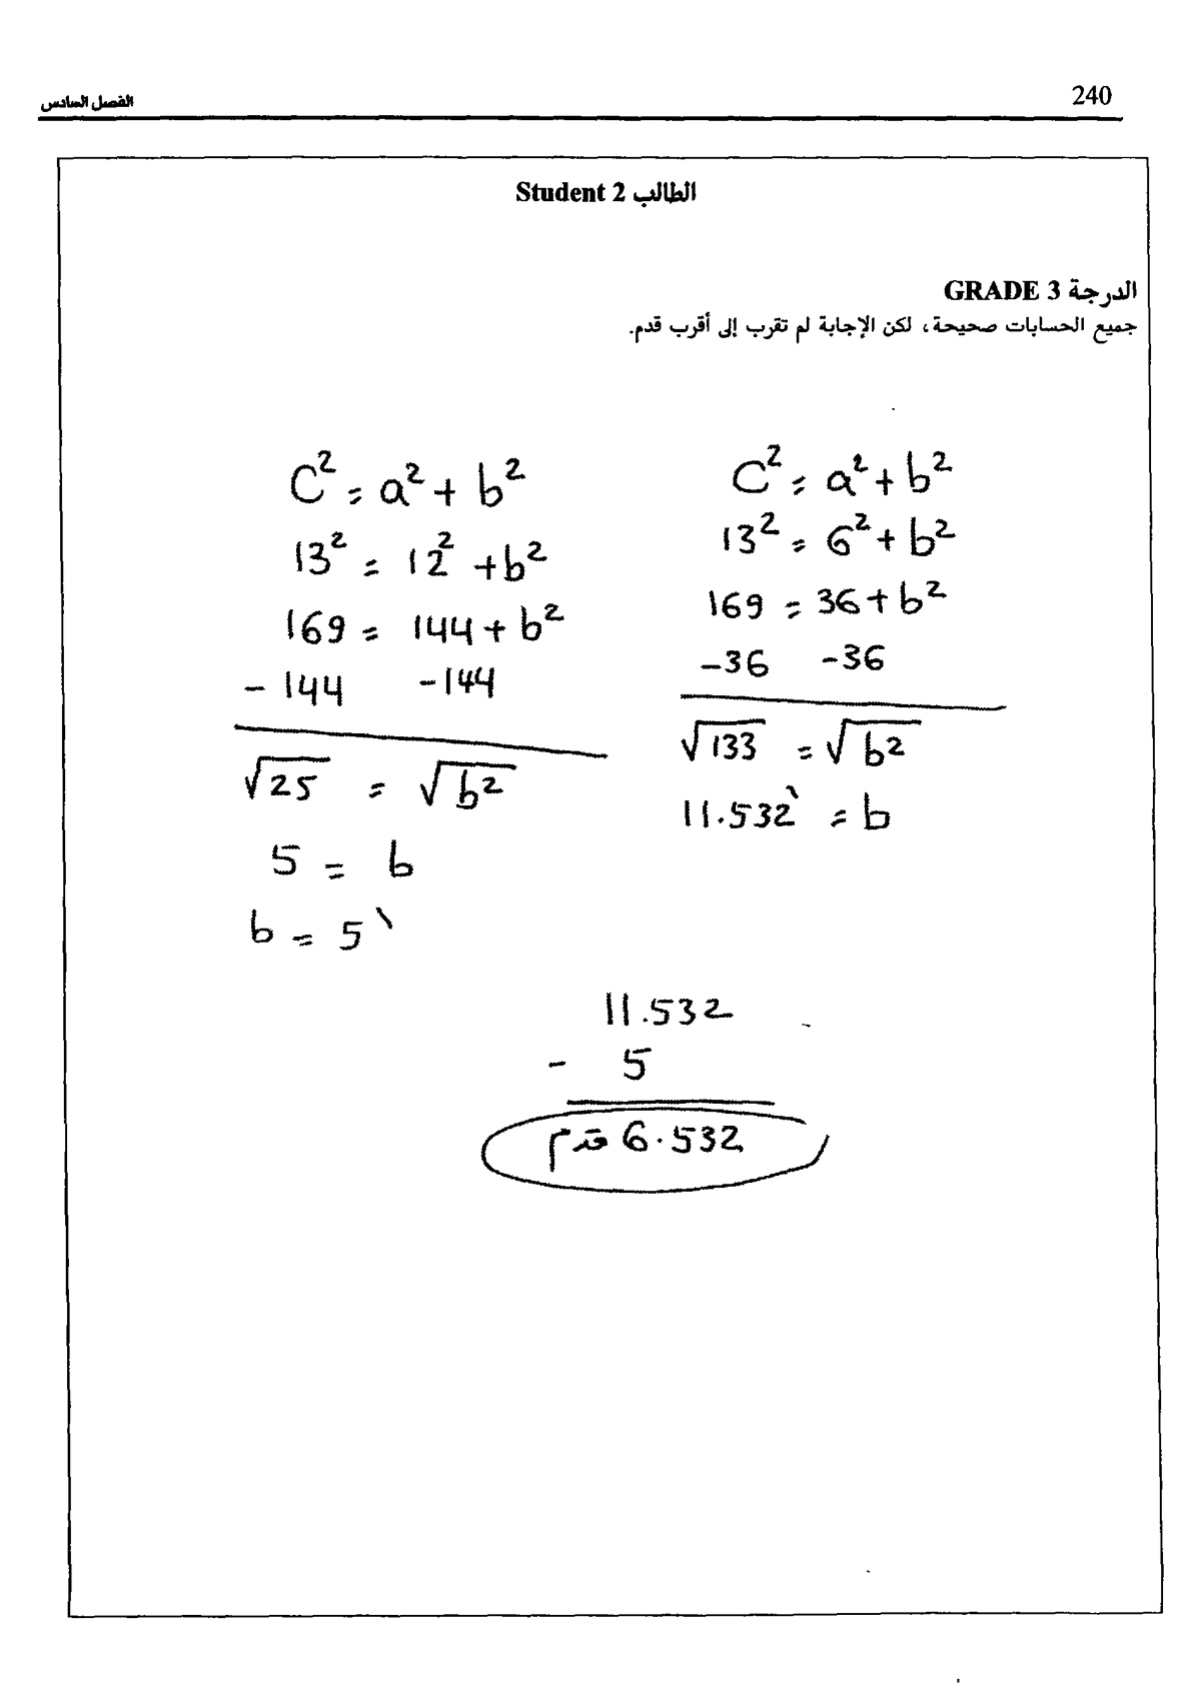 240
الفصل السادس
الطالب Student 2
الدرجة GRADE 3
جميع الحسابات صحيحة، لكن الإجابة لم تقرب إلى أقرب قدم.
C² = a² + b²
13² = 12² + b²
169 = 144 + b²
- 144 -144
√25 = √b²
5 = b
b = 5`
C² = a² + b²
13² = 6² + b²
169 = 36 + b²
-36 -36
√133 = √b²
11.532` = b
11.532
- 5
6.532 قدم